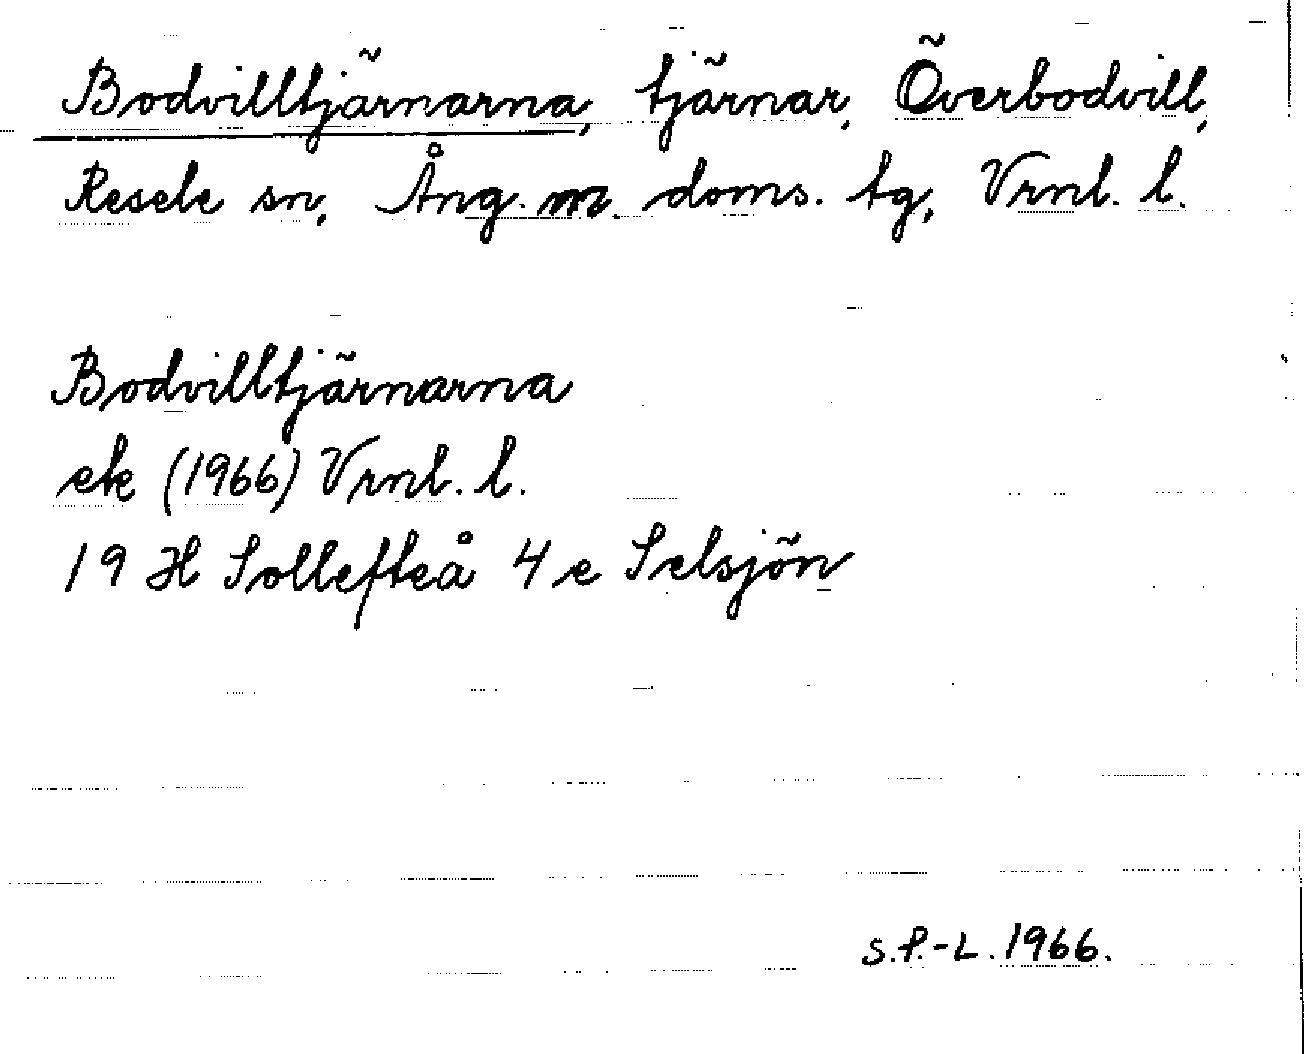 Bodvilltjärnarna, tjärnar, Överbodvill,
Resele sn, Ång. m. doms. tg, Vrnl. l.
Bodvilltjärnarna
ek (1966) Vrnl. l.
19 H Sollefteå 4 e Selsjön
S.P.-L. 1966.